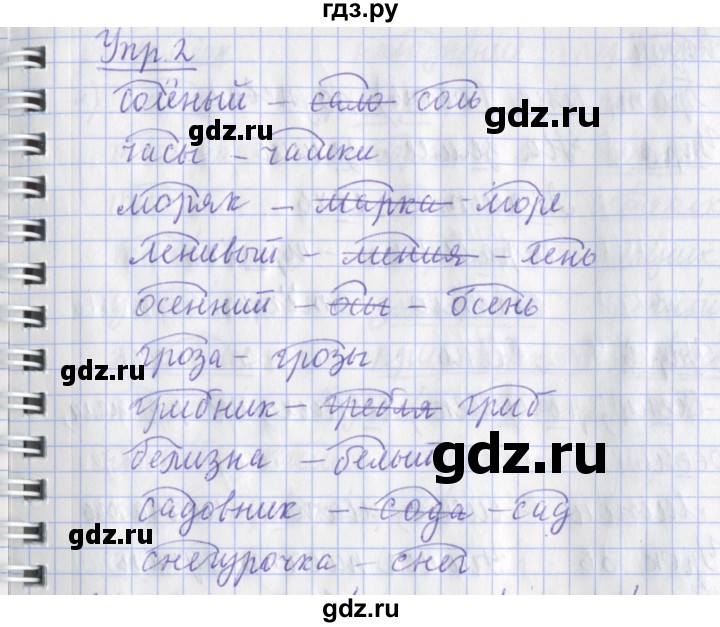 гдз.ру
Упр 2
солёный – сало соль
gdz.ru
gdz.ru
часы – чашки
моряк – марка – море
ленивый – линия – лень
осенний – осы – осень
гроза – грозы
gdz.ru
грибник – гребля гриб
белизна – белый
gdz.ru
садовник – сода – сад
gdz.ru
снегурочка – снег
gdz.ru